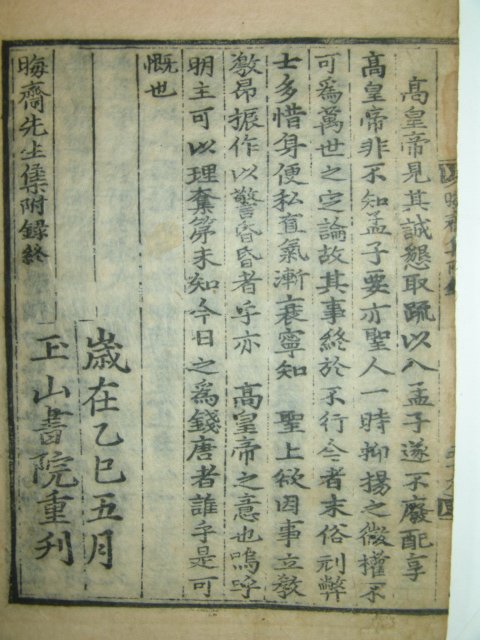 高皇帝見其誠懇取䟽以入孟子遂不廢配享
高皇帝非不知孟子要亦聖人一時抑揚之微權不
可爲萬世之定論故其事終於不行今者末俗刓弊
士多惜身便私直氣漸衰寧知 聖上欲因事立敎
激昂振作以警昏昏者乎亦 高皇帝之意也嗚呼
明主可以理奪第未知今日之爲錢唐者誰乎是可
慨也
歲在乙巳五月
玉山書院重刊
晦齋先生集附錄終